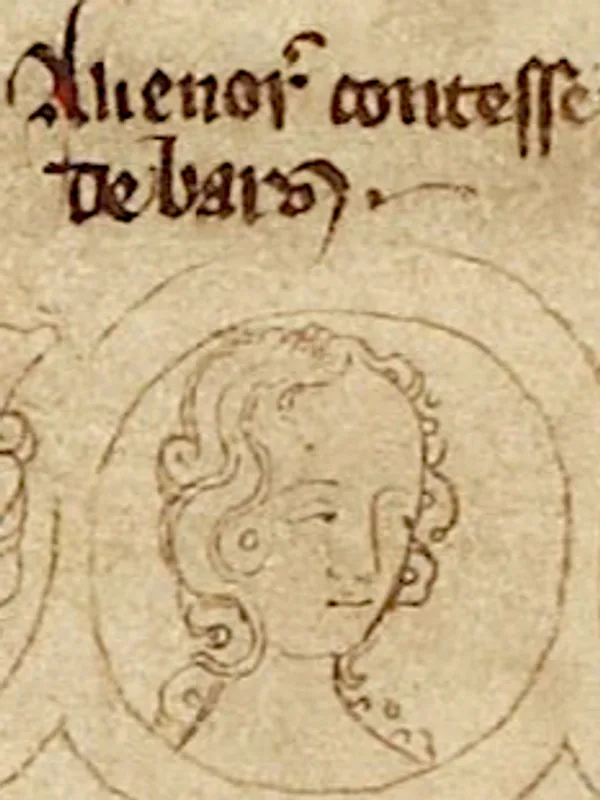 Alienor contesse
de bars